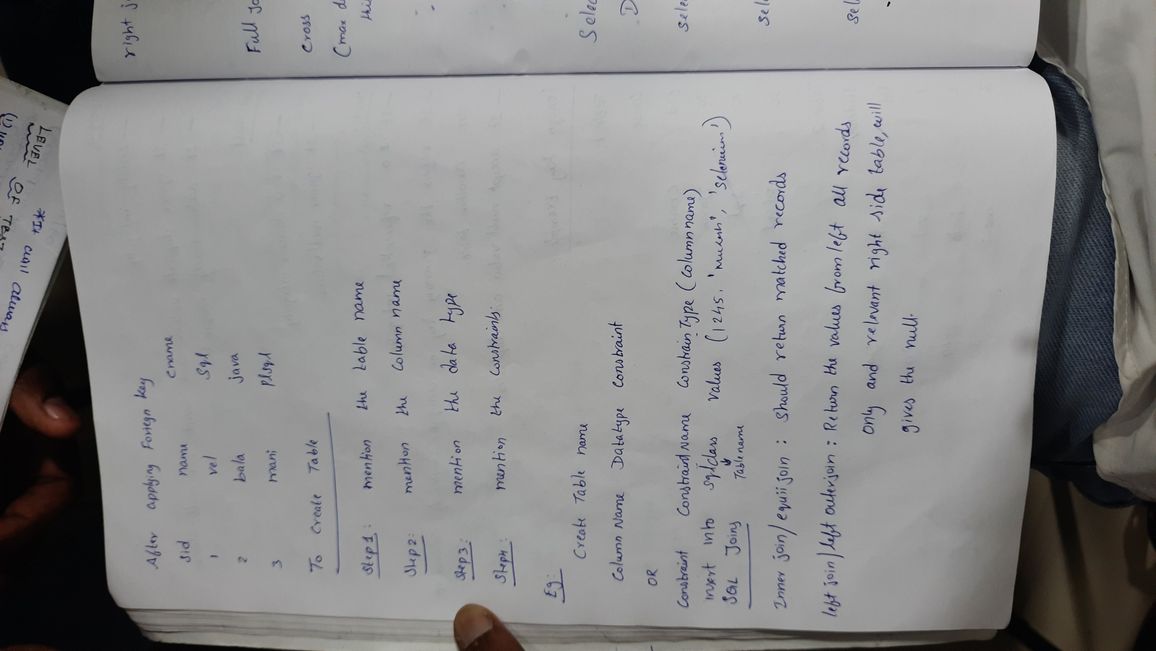 LEVEL OF TEST
*It will always
After applying Foriegn key
sid name cname
1 vel Sql
2 bala java
3 mani Plsql
To Create Table
Step1: mention the table name
Step2: mention the Column name
Step3: mention the data type
Step4: mention the Constraints.
Eg:
Create Table name
Column Name Datatype Constraint
OR
Constraint Constraint Name Constrain Type (Column name)
insert into sqlclass values (1245, 'Mukesh', 'Selenium')
Table name
SQL Joins
Inner join/equii join : Should return matched records
left join/left outerjoin : Return the values from left all records
only and relevant right side table, will
gives the null.
right j
Full jo
Cross
(max d
thi
Selec
D
sele
sel
sel